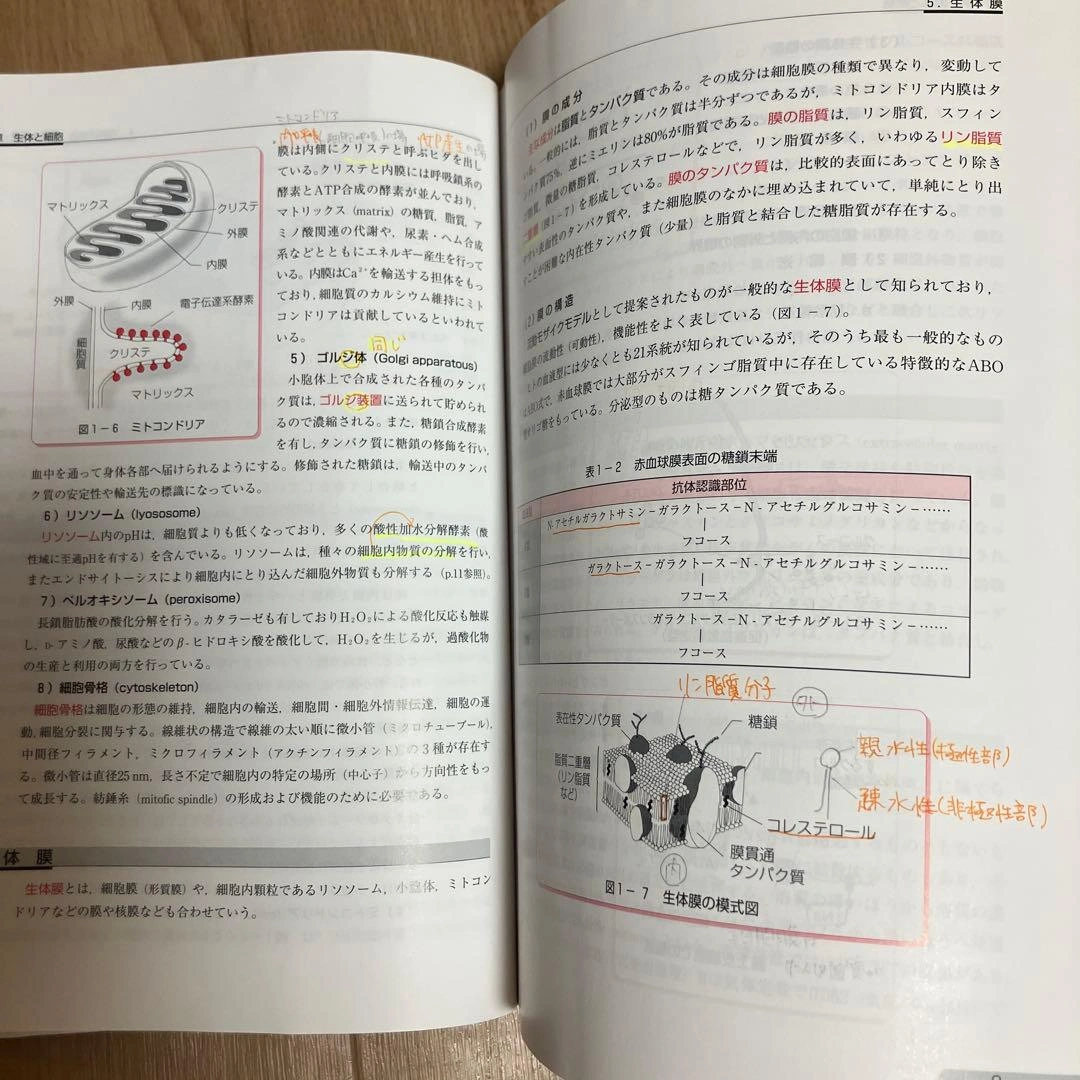 生体と細胞
ミトコンドリア
細胞呼吸の場
ATP産生の場
マトリックス
クリステ
外膜
内膜
外膜
内膜
電子伝達系酵素
細胞質
クリステ
マトリックス
図1-6 ミトコンドリア
膜は内側にクリステと呼ぶヒダを出し
ている。クリステと内膜には呼吸鎖系の
酵素とATP合成の酵素が並んでおり,
マトリックス (matrix) の糖質, 脂質, ア
ミノ酸関連の代謝や, 尿素・ヘム合成
系などとともにエネルギー産生を行って
いる。内膜はCa²⁺を輸送する担体をもっ
ており, 細胞質のカルシウム維持にミト
コンドリアは貢献しているといわれて
いる。
同じ
5) ゴルジ体 (Golgi apparatous)
小胞体上で合成された各種のタンパ
ク質は, ゴルジ装置に送られて貯められ
るので濃縮される。また, 糖鎖合成酵素
を有し, タンパク質に糖鎖の修飾を行い,
血中を通って身体各部へ届けられるようにする。修飾された糖鎖は, 輸送中のタンパ
ク質の安定性や輸送先の標識になっている。
6) リソソーム (lyososome)
リソソーム内のpHは, 細胞質よりも低くなっており, 多くの酸性加水分解酵素 (酸
性域に至適pHを有する) を含んでいる。リソソームは, 種々の細胞内物質の分解を行い,
またエンドサイトーシスにより細胞内にとり込んだ細胞外物質も分解する (p.11参照)。
7) ペルオキシソーム (peroxisome)
長鎖脂肪酸の酸化分解を行う。カタラーゼも有しておりH₂O₂による酸化反応も触媒
し, D-アミノ酸, 尿酸などのβ-ヒドロキシ酸を酸化して, H₂O₂を生じるが, 過酸化物
の生産と利用の両方を行っている。
8) 細胞骨格 (cytoskeleton)
細胞骨格は細胞の形態の維持, 細胞内の輸送, 細胞間・細胞外情報伝達, 細胞の運
動, 細胞分裂に関与する。線維状の構造で線維の太い順に微小管 (ミクロチューブール),
中間径フィラメント, ミクロフィラメント (アクチンフィラメント) の3種が存在す
る。微小管は直径25 nm, 長さ不定で細胞内の特定の場所 (中心子) から方向性をもっ
て成長する。紡錘糸 (mitofic spindle) の形成および機能のために必要である。
体 膜
生体膜とは, 細胞膜 (形質膜) や, 細胞内顆粒であるリソソーム, 小胞体, ミトコン
ドリアなどの膜や核膜なども合わせていう。
5. 生体膜
(1) 膜の成分
主な成分は脂質とタンパク質である。その成分は細胞膜の種類で異なり, 変動して
いる。一般的には, 脂質とタンパク質は半分ずつであるが, ミトコンドリア内膜はタ
ンパク質75%, 逆にミエリンは80%が脂質である。膜の脂質は, リン脂質, スフィン
ゴ脂質, 微量の糖脂質, コレステロールなどで, リン脂質が多く, いわゆるリン脂質
二重層 (図1-7) を形成している。膜のタンパク質は, 比較的表面にあってとり除き
やすい表面性のタンパク質や, また細胞膜のなかに埋め込まれていて, 単純にとり出
すことが困難な内在性タンパク質 (少量) と脂質と結合した糖脂質が存在する。
(2) 膜の構造
流動モザイクモデルとして提案されたものが一般的な生体膜として知られており,
細胞膜の流動性 (可動性), 機能性をよく表している (図1-7)。
ヒトの血液型には少なくとも21系統が知られているが, そのうち最も一般的なもの
はABO式で, 赤血球膜では大部分がスフィンゴ脂質中に存在している特徴的なABO
オリゴ糖をもっている。分泌型のものは糖タンパク質である。
表1-2 赤血球膜表面の糖鎖末端
抗体認識部位
N-アセチルガラクトサミン-ガラクトース-N-アセチルグルコサミン-……
フコース
ガラクトース-ガラクトース-N-アセチルグルコサミン-……
フコース
ガラクトース-N-アセチルグルコサミン-……
フコース
リン脂質分子
外
表在性タンパク質
糖鎖
脂質二重層
(リン脂質
など)
親水性(極性部)
疎水性(非極性部)
コレステロール
膜貫通
タンパク質
内
図1-7 生体膜の模式図